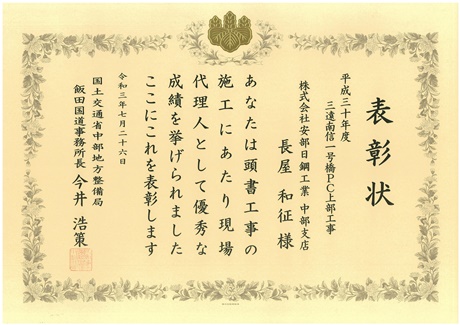 表彰状
平成三十年度
三遠南信一号橋PC上部工事
株式会社安部日鋼工業 中部支店
長屋 和征 様
あなたは頭書工事の
施工にあたり現場
代理人として優秀な
成績を挙げられました
ここにこれを表彰します
令和三年七月二十六日
国土交通省中部地方整備局
飯田国道事務所長 今井 浩策